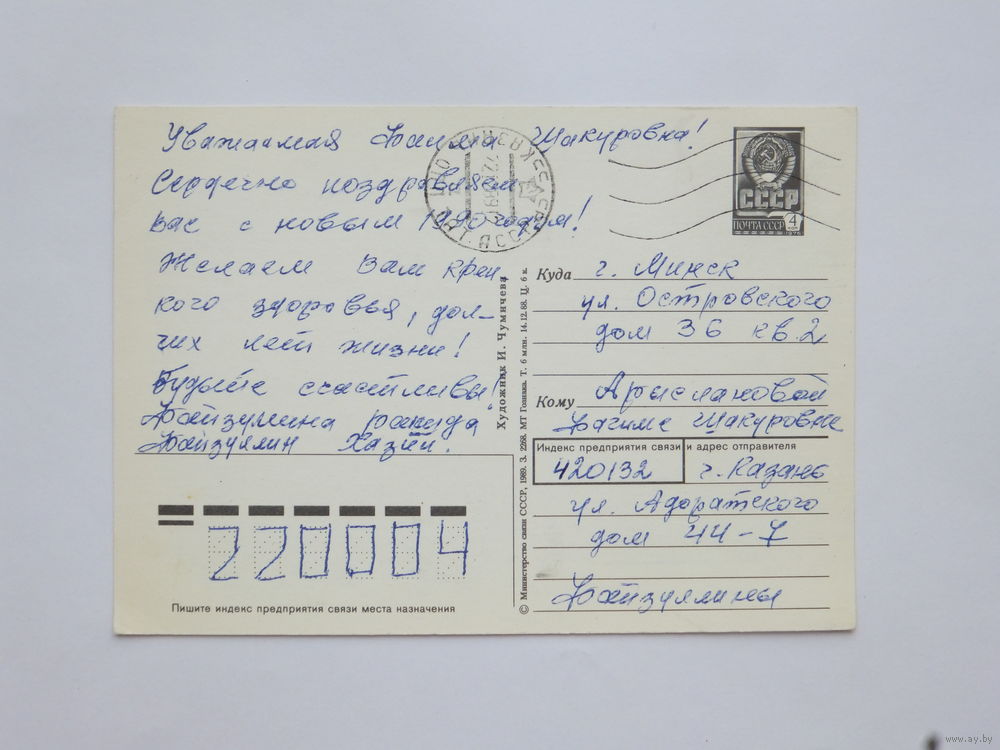 Уважаемая Шакуровна!
Сердечно поздравляем
Вас с новым 1990 годом!
Желаем Вам креп
кого здоровья, дол-
гих лет жизни!
Будьте счастливы!
Файзуллин Хазий.
Пишите индекс предприятия связи места назначения
220004
Художник И. Чумичева
© Министерство связи СССР, 1989. З. 2268. МТ Гознака. Т. 6 млн. 14.12.88. Ц. 6 к.
СССР
ПОЧТА СССР
4
КОП
1976
Куда г. Минск
ул. Островского
дом 36 кв. 2
Кому Арыслановой
Шакуровне
Индекс предприятия связи и адрес отправителя
420132 г. Казань
ул. Адоратского
дом 44-7
Файзуллины
www.ay.by